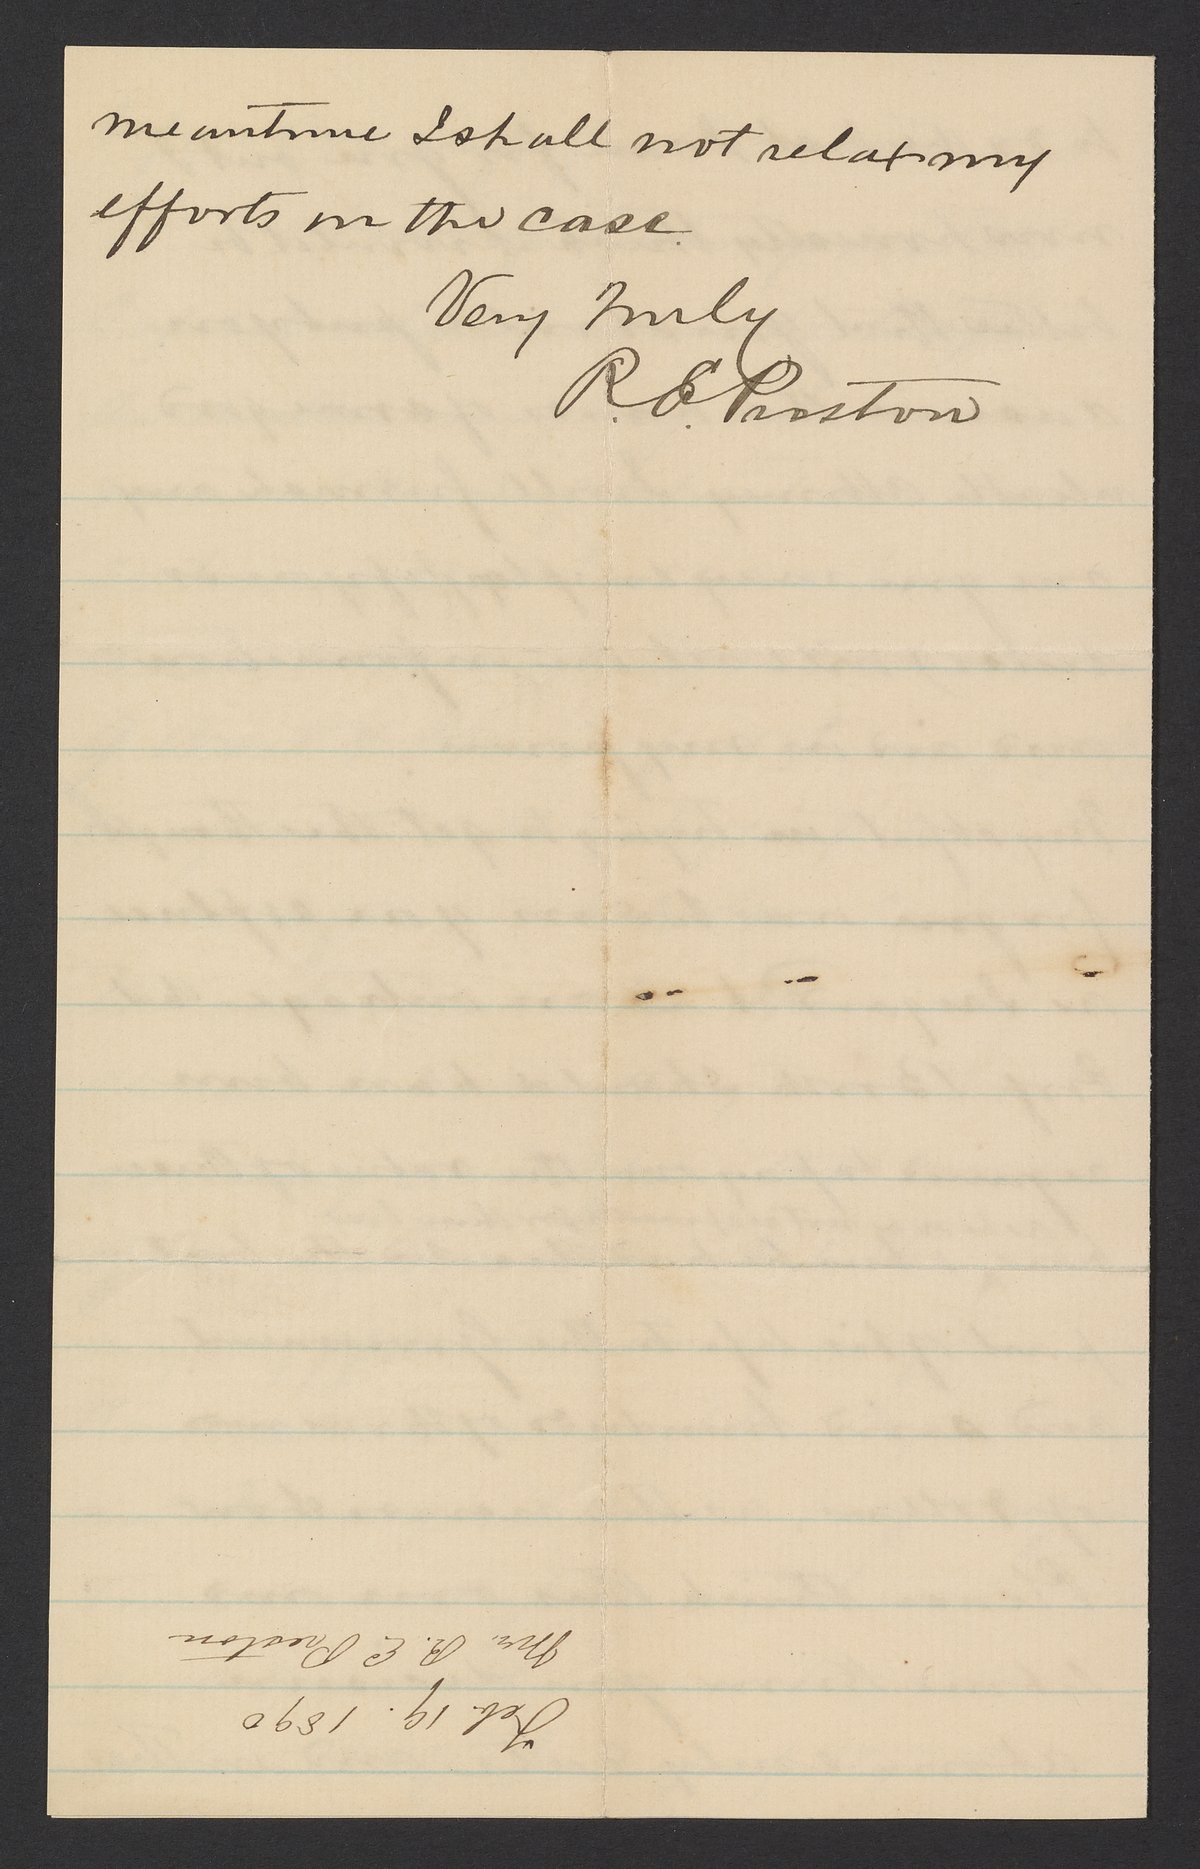 meantime I shall not relax my
efforts in the case.
Very Truly
R. E. Preston
Feb. 19. 1890
Mr. R. E. Preston